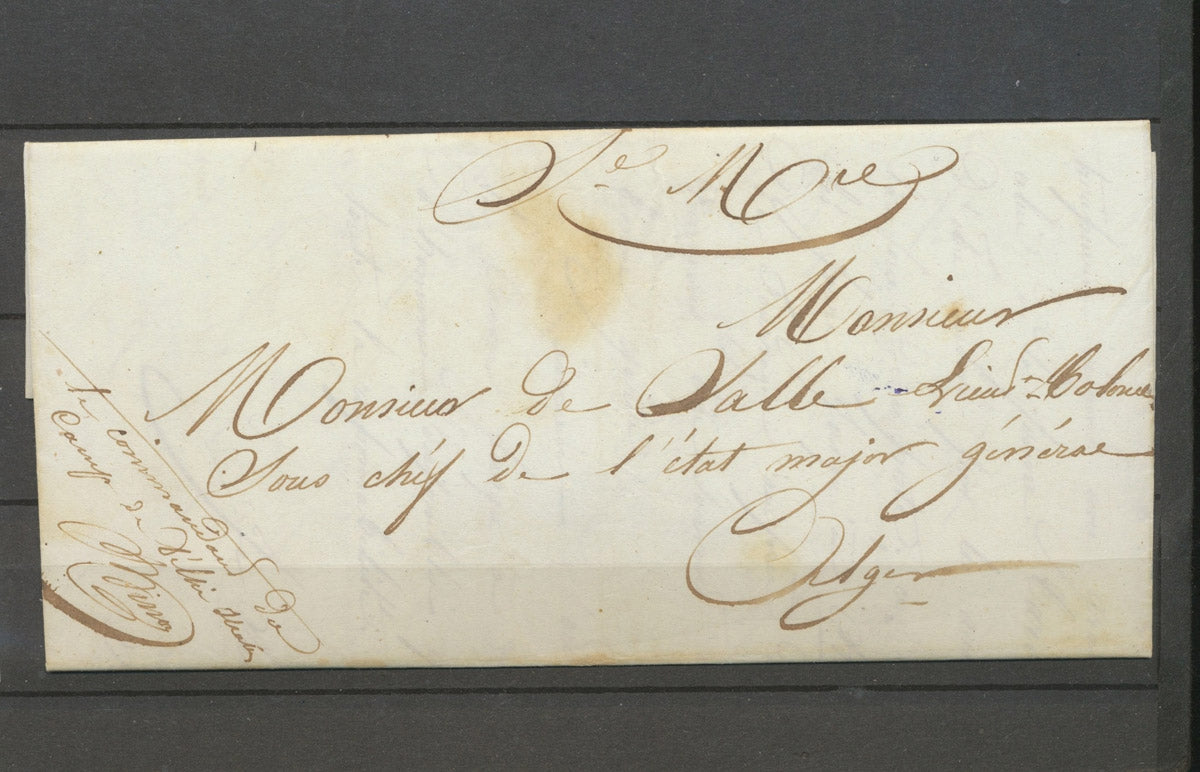 Se Mre
Monsieur
Monsieur de Salle Lieut-Colonel
Sous chef de l'état major général
Alger
le commandant de
Camp de d'Ibrahim